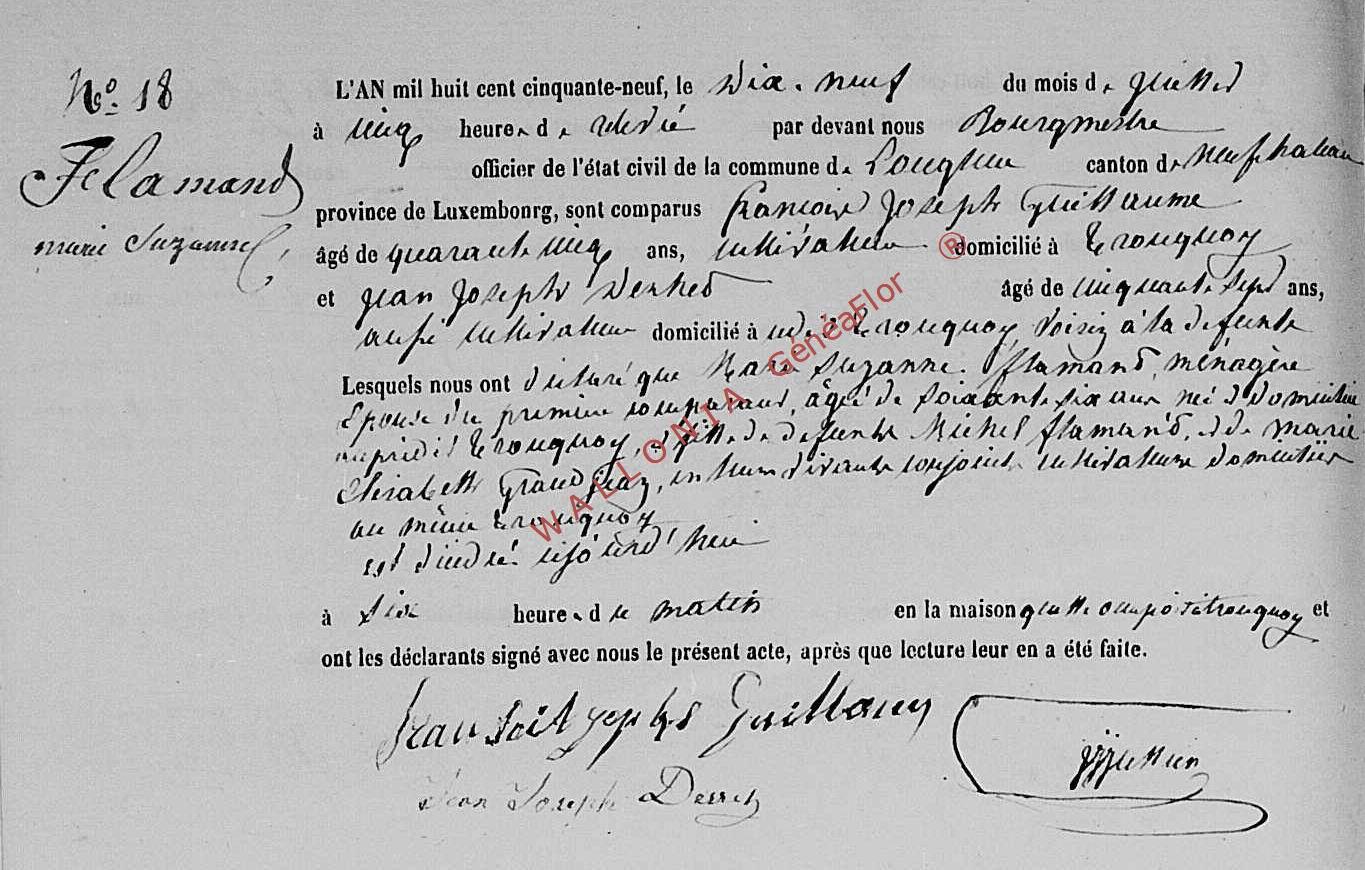 No. 18
Flamand
marie Suzanne
L'AN mil huit cent cinquante-neuf, le dix-neuf du mois de juillet
à cinq heures de relevé par devant nous Bourgmestre
officier de l'état civil de la commune de Longlier canton de Neufchateau
province de Luxembourg, sont comparus francois Joseph Guillaume
âgé de quarante cinq ans, cultivateur domicilié à tronquoy
et Jean Joseph Derhet âgé de cinquante sept ans,
aussi cultivateur domicilié à udit tronquoy voisin à la defunte
Lesquels nous ont déclaré que Marie suzanne flamand, ménagère
Epouse du premier comparant, âgée de soixante six ans née & domiciliée
au prédit tronquoy, fille de defunts Michel flamand, et de marie
Elisabeth Grandjean, en leur vivants conjoints cultivateurs domiciliés
au même tronquoy
est décédée cejourd'hui
à six heures de matin en la maison quelle occupoit à tronquoy et
ont les déclarants signé avec nous le présent acte, après que lecture leur en a été faite.
Guillaum
Jean Joseph
WALLONIA GénéaFlor ®